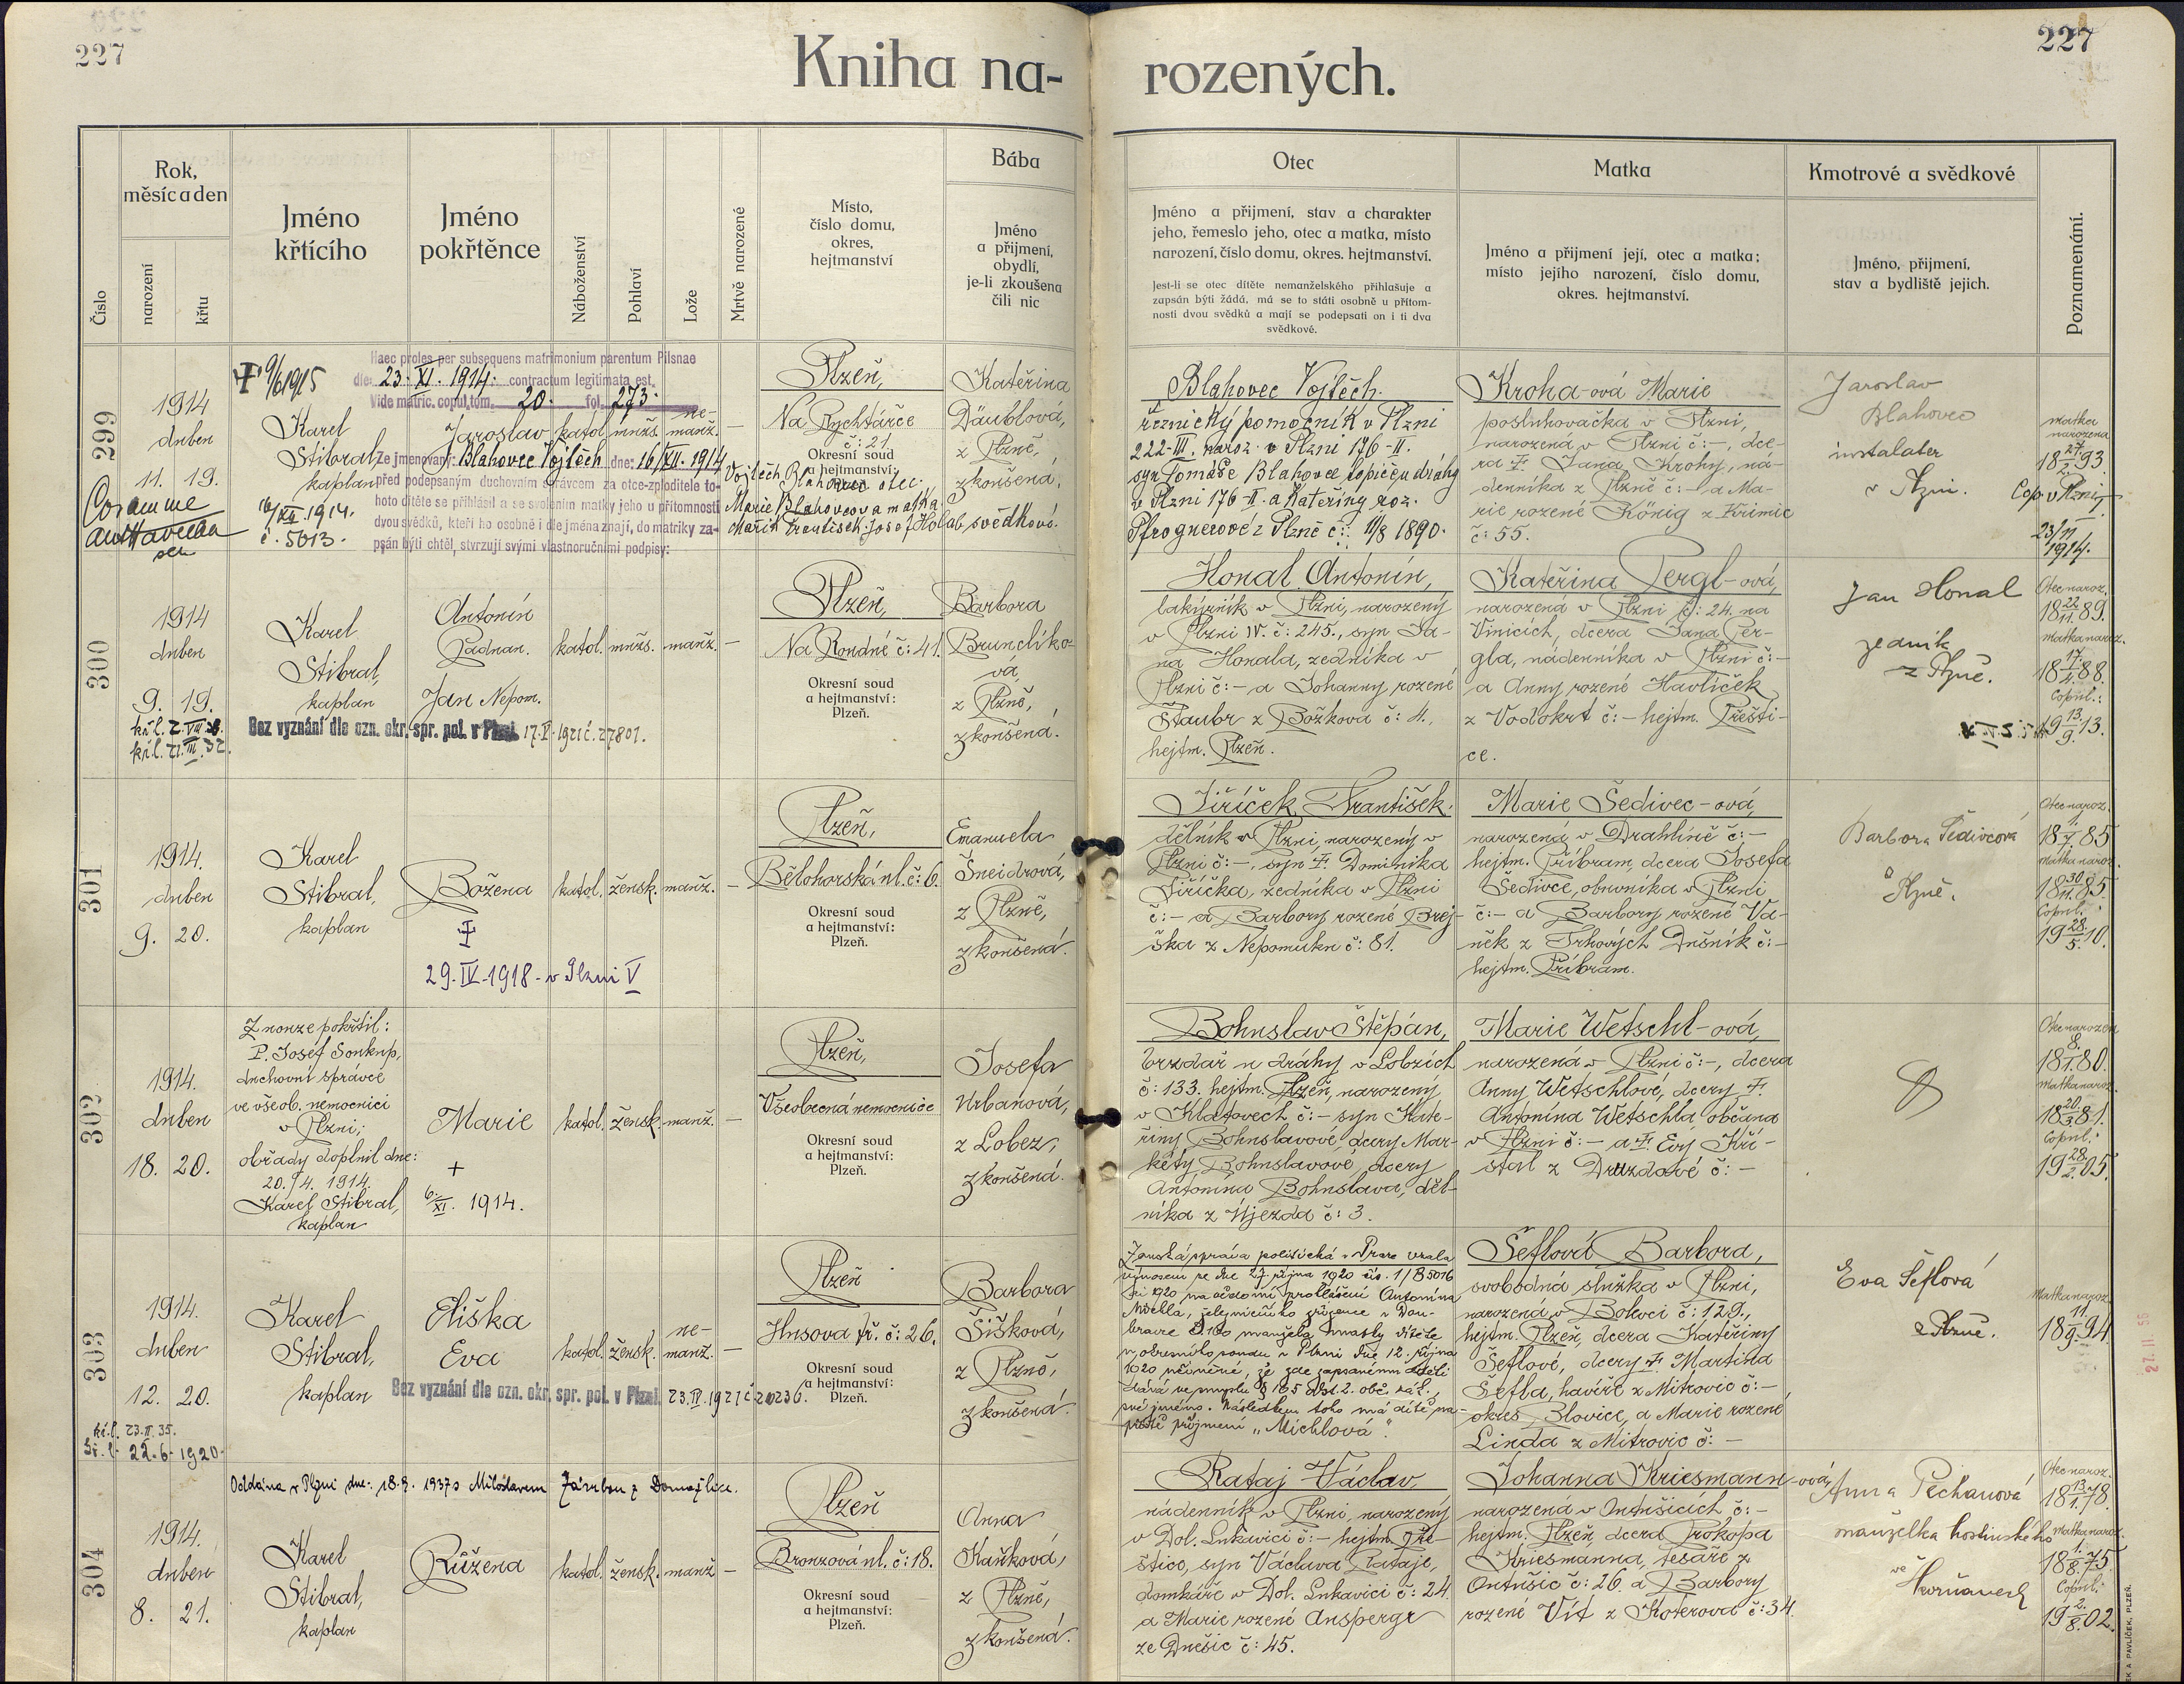 227
227
Kniha na-
rozených.
Číslo
Rok,
měsíc a den
narození
křtu
Jméno
křtícího
Jméno
pokřtěnce
Náboženství
Pohlaví
Lože
Mrtvě narozené
Místo,
číslo domu,
okres,
hejtmanství
Bába
Jméno
a přijmení,
obydlí,
je-li zkoušena
čili nic
Otec
Jméno a přijmení, stav a charakter
jeho, řemeslo jeho, otec a matka, místo
narození, číslo domu, okres. hejtmanství.
Jest-li se otec dítěte nemanželského přihlašuje a
zapsán býti žádá, má se to státi osobně u přítom-
nosti dvou svědků a mají se podepsati on i ti dva
svědkové.
Matka
Jméno a přijmení její, otec a matka;
místo jejího narození, číslo domu,
okres. hejtmanství.
Kmotrové a svědkové
Jméno, přijmení,
stav a bydliště jejich.
Poznamenání.
299
1914
duben
11. 19.
Coram me
16/XII. 1914.
č. 5613.
9/6 1915
Haec proles per subsequens matrimonium parentum Pilsnae
die 23. XI. 1914. contractum legitimata est.
Vide matric. copul. tom. 20. fol. 273.
Karel
Stibral,
kaplan
Jaroslav
katol.
mužs.
ne-
manž.
—
Ze jmenovaný: Blahovec Vojtěch dne: 16/XII. 1914
před podepsaným duchovním správcem za otce-zploditele to-
hoto dítěte se přihlásil a se svolením matky jeho u přítomnosti
dvou svědků, kteří ho osobně i dle jména znají, do matriky za-
psán býti chtěl, stvrzují svými vlastnoručními podpisy:
Vojtěch Blahovec otec.
Marie Blahovcova matka
František Josef Holab, svědkové.
Plzeň,
Na Rychtářce
č: 21
Okresní soud
a hejtmanství:
Plzeň.
Kateřina
Däublová,
z Plzně,
zkoušená.
Blahovec Vojtěch.
řeznický pomocník v Plzni
222-III. naroz. v Plzni 176-II.
syn Tomáše Blahovce topiče u dráhy
v Plzni 176-II. a Kateřiny roz.
Pfrognerové z Plzně č:. 11/8 1890.
Kroha-ová Marie
posluhovačka v Plzni,
narozená v Plzni č: -, dce-
ra † Jana Krohy, ná-
denníka z Plzně č: - a Ma-
rie rozené König z Křimic
č: 55.
Jaroslav
Blahovec
instalater
v Plzni.
matka
narozena
18 27/2. 93.
Cop. v Plzni
23/11
1914.
300
1914
duben
9. 19.
Karel
Stibral,
kaplan
Antonín
Jan Nepom.
katol.
mužs.
manž.
—
Bez vyznání dle ozn. okr. spr. pol. v Plzni 17.V.1921 č. 27801.
Plzeň,
Na Roudné č: 41.
Okresní soud
a hejtmanství:
Plzeň.
Barbora
Brunclíko-
vá,
z Plzně,
zkoušená.
Honal Antonín,
lakýrník v Plzni, narozený
v Plzni IV. č: 245., syn Ja-
na Honala, zedníka v
Plzni č: - a Johanny rozené
Štaubr z Božkova č: 4.,
hejtm. Plzeň.
Kateřina Pergl-ová,
narozená v Plzni č: 24. na
Vinicích, dcera Jana Per-
gla, nádenníka v Plzni č: -
a Anny rozené Havlíček
z Vodokrt č: - hejtm. Přešti-
ce.
Jan Honal
zedník
z Plzně.
Otec naroz.
18 22/11. 89.
Matka naroz.
18 17./4. 88.
Copul.:
19 13./9. 13.
301
1914.
duben
9. 20.
Karel
Stibral,
kaplan
Božena
†
29. IV. 1918 - v Plzni V
katol.
žensk.
manž.
—
Plzeň,
Bělohorská ul. č: 6.
Okresní soud
a hejtmanství:
Plzeň.
Emanuela
Šneidrová,
z Plzně,
zkoušená.
Jiříček František.
dělník v Plzni, narozený v
Plzni č: -, syn † Dominika
Jiříčka, zedníka v Plzni
č: - a Barbory rozené Brej-
ška z Nepomuku č: 81.
Marie Šedivec-ová,
narozená v Drahlíně č: -
hejtm. Příbram, dcera Josefa
Šedivce, obuvníka v Plzni
č: - a Barbory rozené Va-
něk z Trhových Dušník č: -
hejtm. Příbram.
Barbora Šedivcová
Plzně.
Otec naroz.
18 1./7. 85
Matka naroz.
18 30./11. 85.
Copul.:
19 28./5. 10.
302
1914.
duben
18. 20.
Z nouze pokřtil:
P. Josef Soukup,
duchovní správce
ve všeob. nemocnici
v Plzni;
obřady doplnil dne:
20./4. 1914.
Karel Stibral,
kaplan
Marie
+
6./XI. 1914.
katol.
žensk.
manž.
—
Plzeň,
Všeobecná nemocnice
Okresní soud
a hejtmanství:
Plzeň.
Josefa
Urbanová,
z Lobez,
zkoušená.
Bohuslav Štěpán,
brzdař u dráhy v Lobzích
č: 133. hejtm. Plzeň, narozený
v Klatovech č: - syn Kate-
řiny Bohuslavové, dcery Mar-
kéty Bohuslavové, dcery
Antonína Bohuslava, děl-
níka z Újezda č: 3.
Marie Wetschl-ová,
narozená v Plzni č: -, dcera
Anny Wetschlové, dcery †
Antonína Wetschla, občana
v Plzni č: - a † Evy Kři-
stal z Druzdové č: -
Otec narozen
18 8./1. 80.
Matka naroz.
18 20./3. 81.
Copul.:
19 28./2. 05.
303
1914.
duben
12. 20.
22. 6. 1920.
Karel
Stibral,
kaplan
Eliška
Eva
katol.
žensk.
ne-
manž.
—
Bez vyznání dle ozn. okr. spr. pol. v Plzni. 23. IV. 1921 č 20236.
Plzeň
Husova tř. č: 26.
Okresní soud
a hejtmanství:
Plzeň.
Barbora
Šišková,
z Plzně,
zkoušená.
Zemská správa politická v Praze vzala
výnosem ze dne 27. října 1920 čís. 1/B 5016
ai 1920 na vědomí prohlášení Antonína
Michla, železničního zřízence v Dou-
bravce č. 100 manžela matky dítěte
u okresního soudu v Plzni dne 12. října
1020 učiněné, že zde zapsanému dítěti
dává ve smyslu § 165 odst. 2. obč. zák.,
své jméno. Následkem toho má dítě na-
příště příjmení „Michlová".
Šeflová Barbora,
svobodná služka v Plzni,
narozená v Bolevci č: 129.,
hejtm. Plzeň, dcera Kateřiny
Šeflové, dcery † Martina
Šefla, havíře z Mitrovic č: -
okres Blovice, a Marie rozené
Linda z Mitrovic č: -
Eva Šeflová
z Plzně.
Matka naroz.
18 11./9. 94
27. II. 56
304
Oddána v Plzni dne: 18.9. 1937 s Miloslavem Zárubou z Domažlice.
1914.
duben
8. 21.
Karel
Stibral,
kaplan
Růžena
katol.
žensk.
manž.
—
Plzeň
Bronzová ul. č: 18.
Okresní soud
a hejtmanství:
Plzeň.
Anna
Kaňková,
z Plzně,
zkoušená.
Rataj Václav,
nádenník v Plzni, narozený
v Dol. Lukavici č: - hejtm. Pře-
štice, syn Václava Rataje,
domkáře v Dol. Lukavici č: 24
a Marie rozené Anspergr
ze Dnešic č: 45.
Johanna Kriesmann-ová,
narozená v Ontušicích č: -
hejtm. Plzeň, dcera Prokopa
Kriesmanna, tesaře z
Ontušic č: 26. a Barbory
rozené Vít z Koterova č: 34.
Anna Pechanová
manželka hostinského
ve Skvrňanech
Otec naroz.
18 13./1. 78.
Matka naroz.
18 1./8. 75.
Copul.:
19 2./8. 02.
A PAVLÍČEK, PLZEŇ.